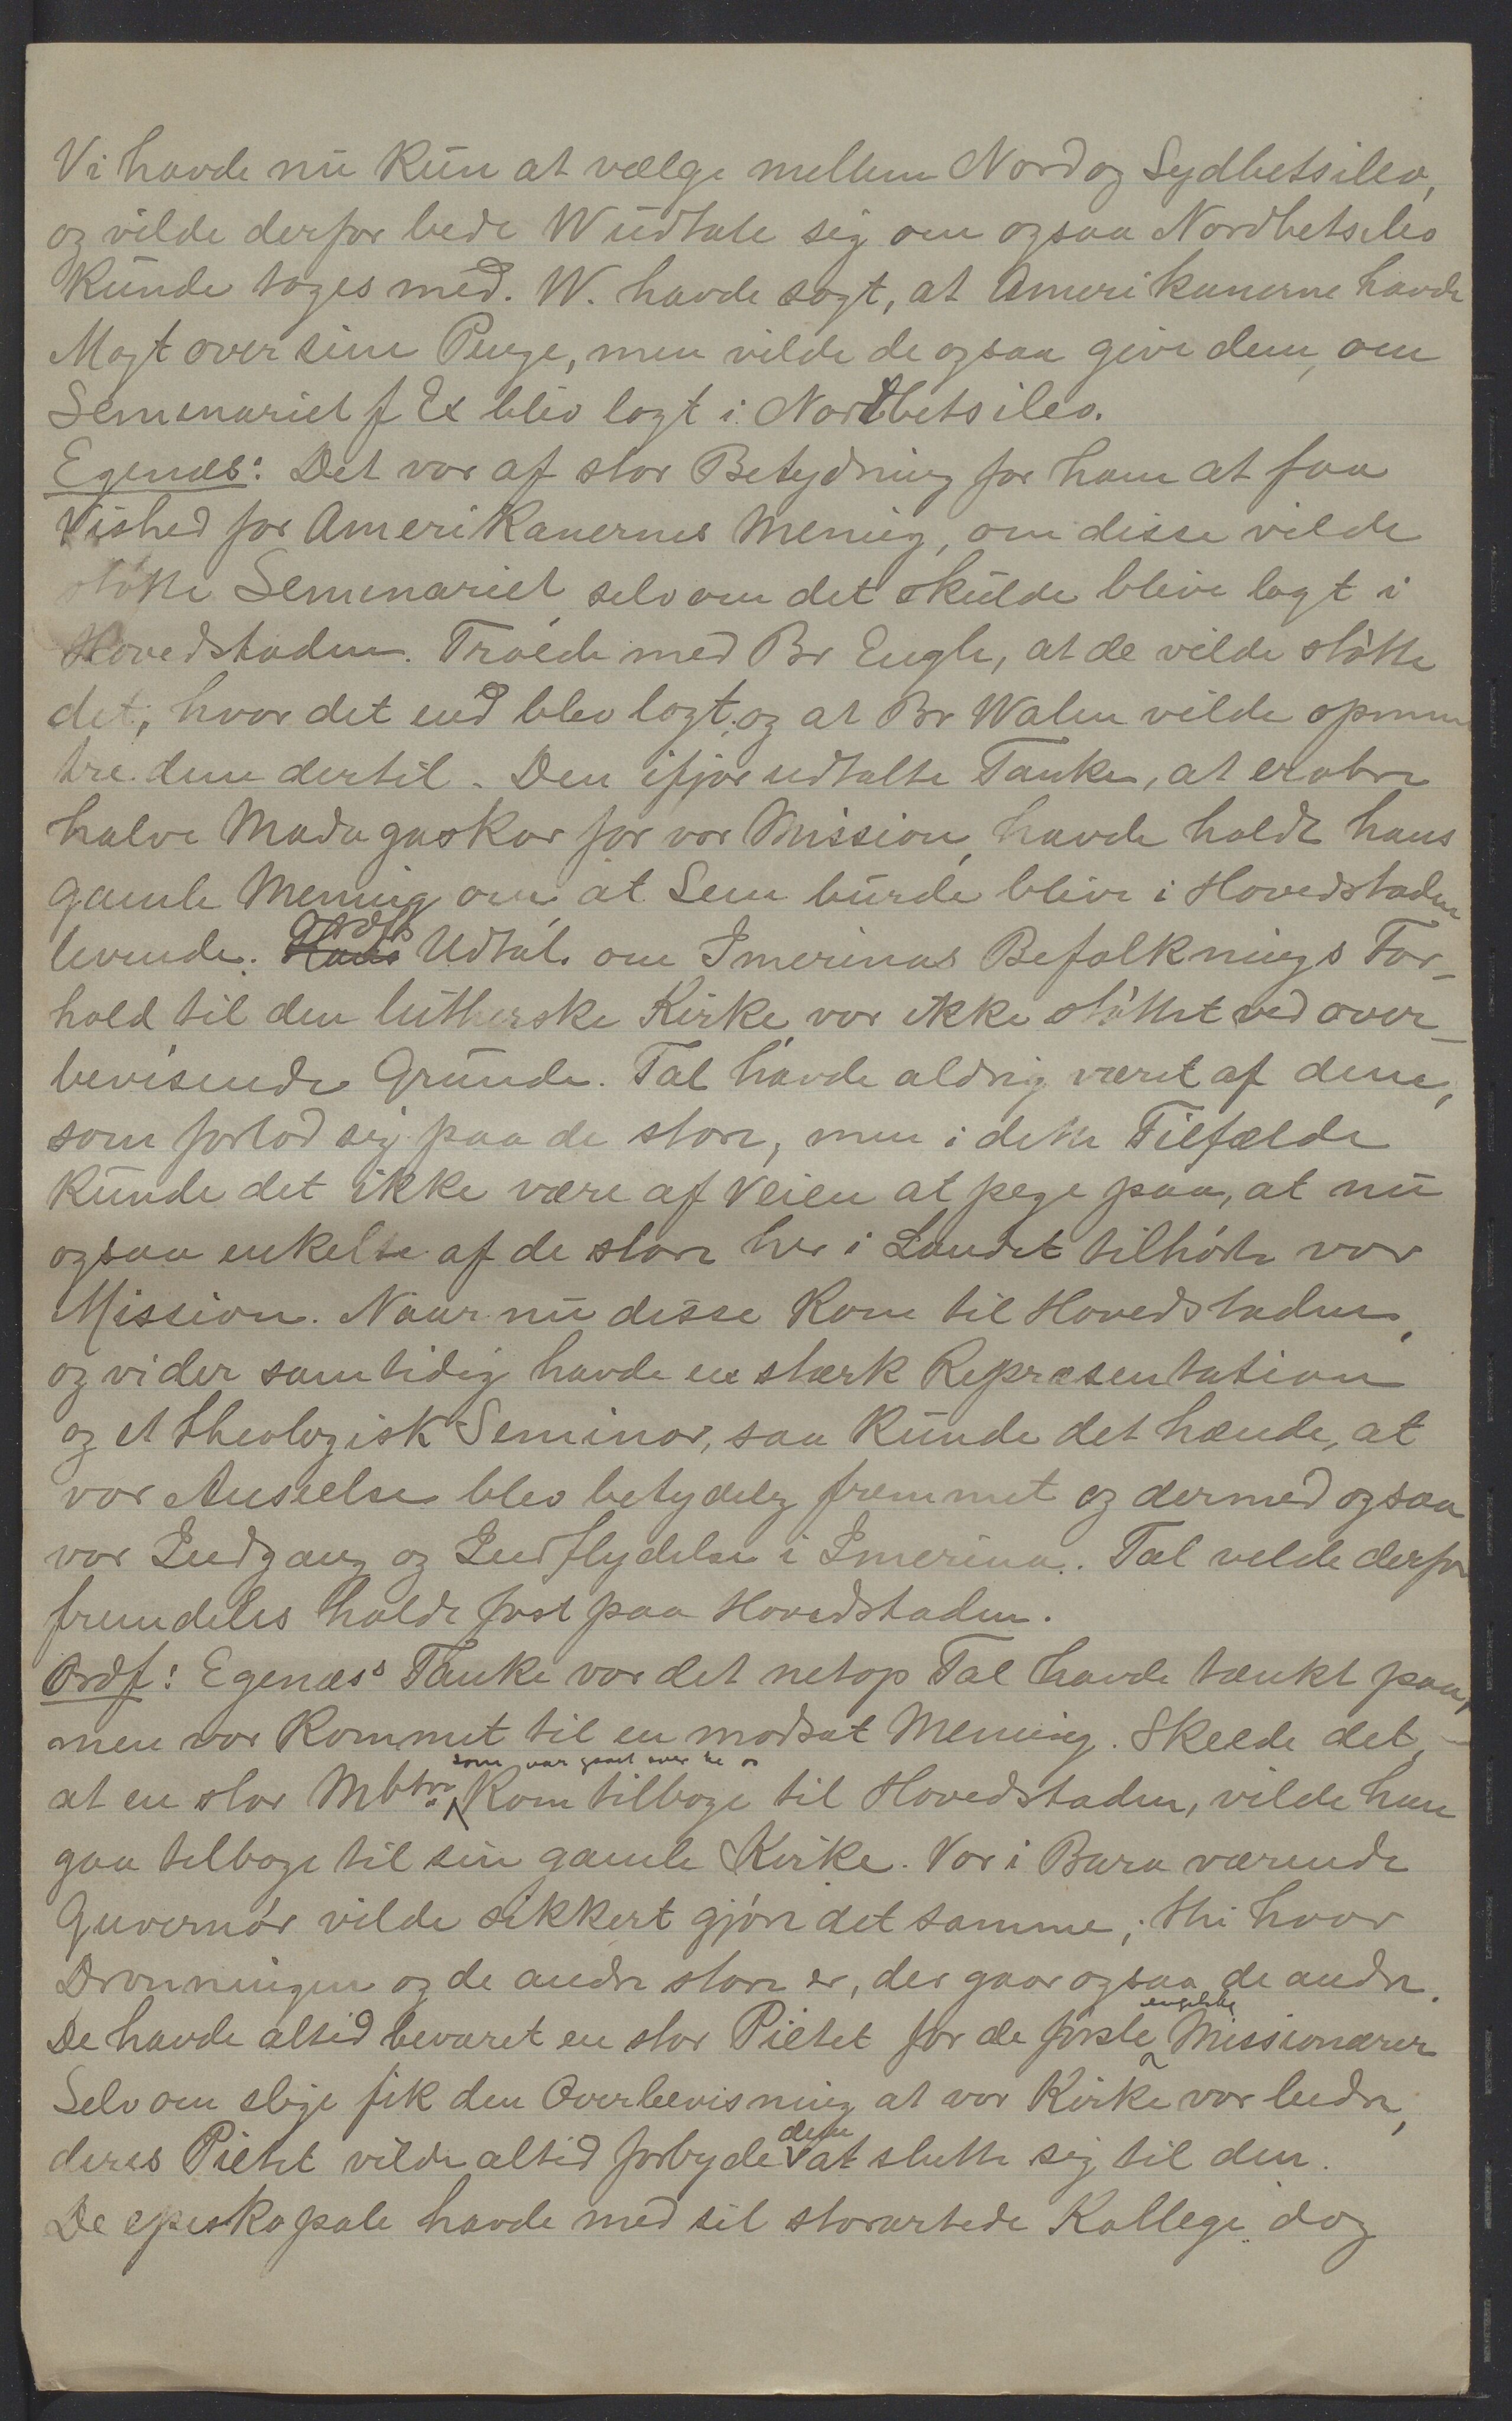 Vi havde nu kun at vælge mellem Nord og Sydbetsileo,
og vilde derfor bede W udtale sig om ogsaa Nordbetsileo
kunde tages med. W. havde sagt, at Amerikanerne havde
Magt over sine Penge, men vilde de ogsaa give dem, om
Seminariet f Ex blev lagt i Nordbetsileo.
Egenæs: Det var af stor Betydning for ham at faa
Vished for Amerikanernes Mening, om disse vilde
støtte Seminariet selv om det skulde blive lagt i
Hovedstaden. Troede med Br Engh, at de vilde støtte
det, hvor det end blev lagt, og at Br Walen vilde opmun
tre dem dertil. Den ifjor udtalte Tanke, at erobre
halve Madagaskar for vor Mission, havde holdt hans
gamle Mening om at Sem burde blive i Hovedstaden
levende. Ordfs Udtal. om Imerinas Befolknings For-
hold til den lutherske Kirke var ikke støttet ved over-
bevisende Grunde. Tal havde aldrig været af dem,
som forlod sig paa de store, men i dette Tilfælde
kunde det ikke være af Veien at pege paa, at nu
ogsaa enkelte af de store her i Landet tilhørte vor
Mission. Naar nu disse kom til Hovedstaden,
og vi der samtidig havde en stærk Repræsentation
og et theologisk Seminar, saa kunde det hænde, at
vor Anseelse blev betydelig fremmet og dermed ogsaa
vor Indgang og Indflydelse i Imerina. Tal vilde derfor
fremdeles holde fast paa Hovedstaden.
Ordf: Egenæs's Tanke var det netop Tal havde tænkt paa,
men var kommet til en modsat Mening. Skeede det,
at en stor Mbtr. som var gaaet over til os kom tilbage til Hovedstaden, vilde han
gaa tilbage til sin gamle Kirke. Vor i Bara værende
Guvernør vilde sikkert gjøre det samme; thi hvor
Dronningen og de andre store er, der gaar ogsaa de andre.
De havde altid bevaret en stor Pietet for de første engelske Missionærer
Selv om slige fik den Overbevisning at vor Kirke var bedre,
deres Pietet vilde altid forbyde dem at slutte sig til den.
De episkopale havde med sit storartede Kollege dog